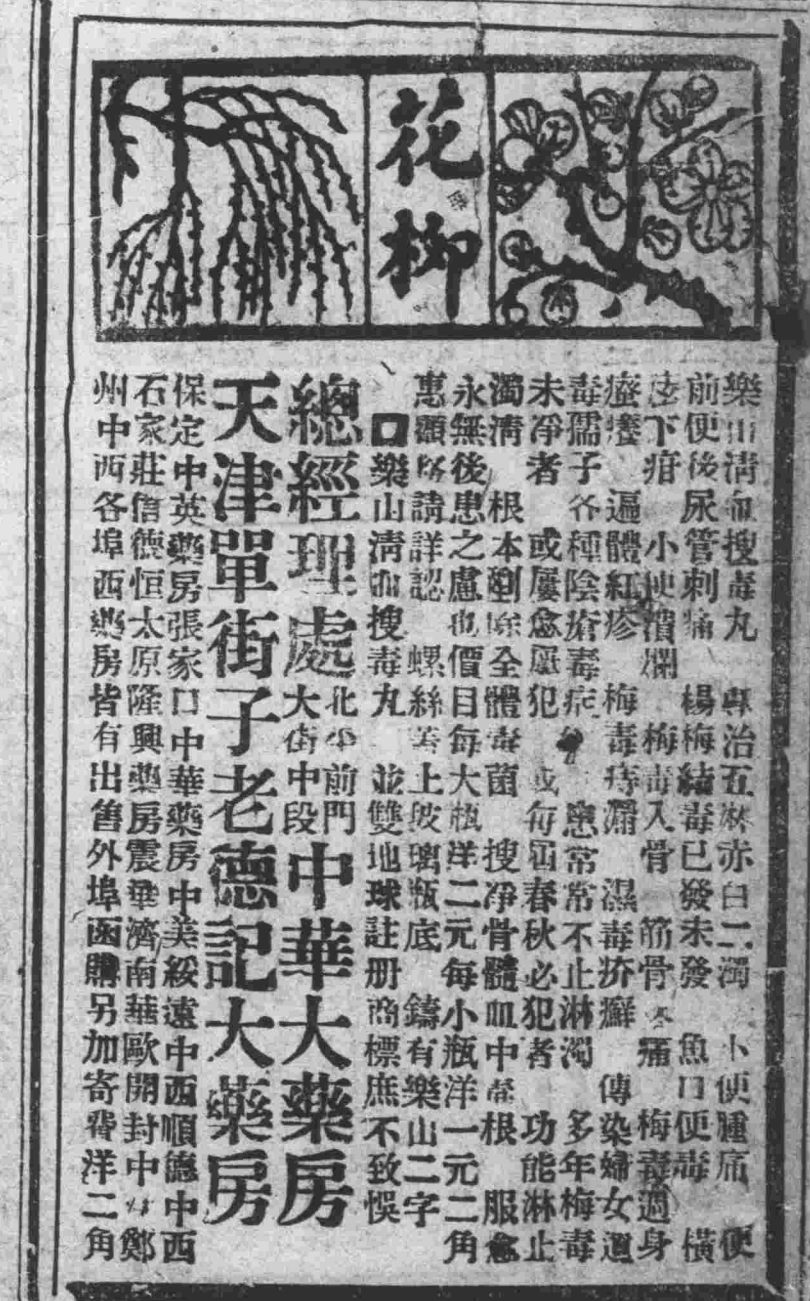 花柳
樂山清血搜毒丸 專治五淋赤白二濁 小便腫痛 便
前便後尿管刺痛 楊梅結毒已發未發 魚口便毒 橫
痃下疳 小便潰爛 梅毒入骨 筋骨疼痛 梅毒週身
瘡瘰 遍體紅疹 梅毒痔漏 濕毒疥癬 傳染婦女週
毒孺子各種陰瘡毒症 應常常不止淋濁 多年梅毒
未凈者 或屢愈屢犯 或每屆春秋必犯者 功能淋止
濁清 根本剷除全體毒菌 搜凈骨髓血中毒根 服愈
永無後患之慮也價目每大瓶洋二元每小瓶洋一元二角
惠顧 請詳認 螺絲蓋上玻璃瓶底 鑄有樂山二字
口樂山清血搜毒丸 並雙地球註册商標庶不致悞
總經理處 北 前門大街中段 中華大藥房
天津單街子老德記大藥房
保定中英藥房張家口中華藥房中美綏遠中西順德中西
石家莊信德恒太原隆興藥房震華濟南華歐開封中 鄭
州中西各埠西藥房皆有出售外埠函購另加寄費洋二角